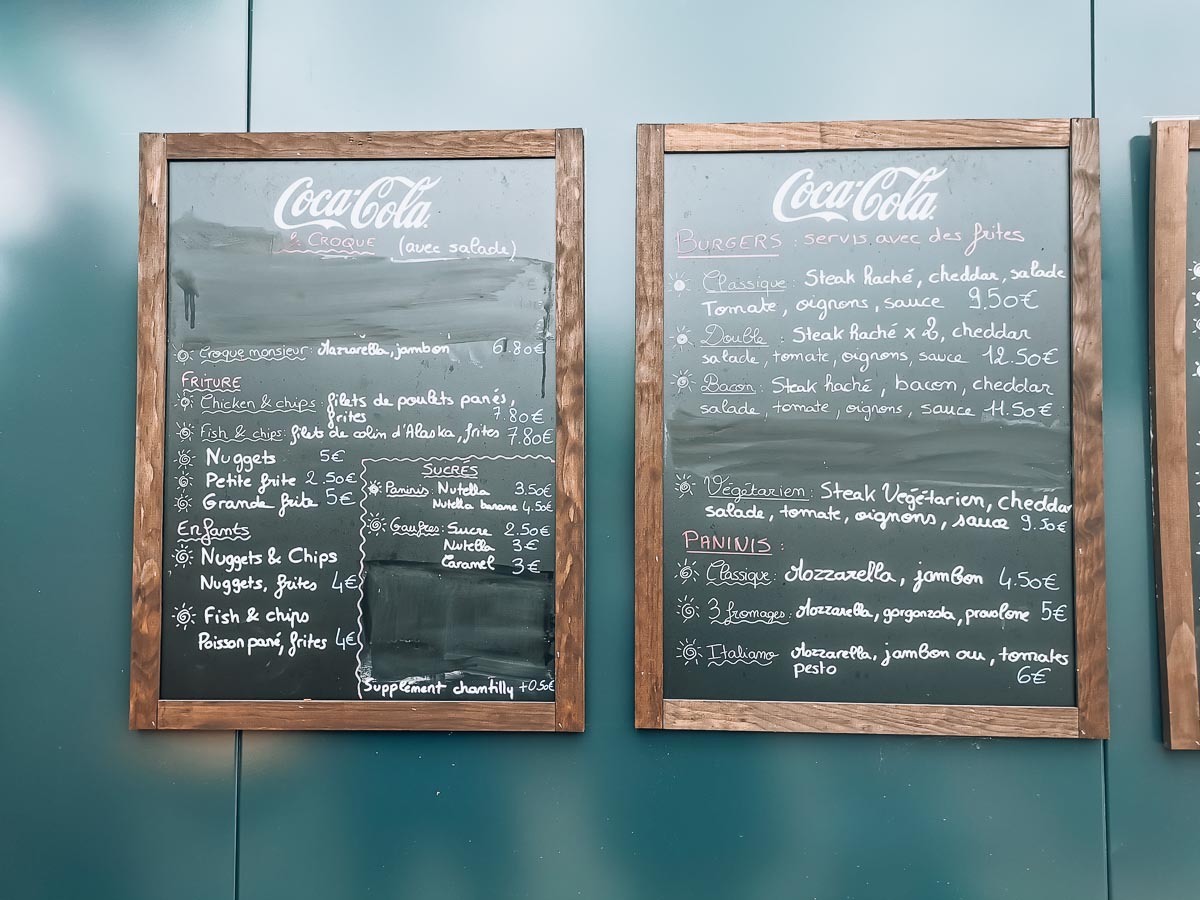 Coca-Cola
CROQUE (avec salade)
Croque monsieur: Mozzarella, jambon 6.80€
FRITURE
Chicken & chips: filets de poulets panés,
frites 7.80€
Fish & chips: filets de colin d'Alaska, frites 7.80€
Nuggets 5€
Petite frite 2.50€
Grande frite 5€
Enfants
Nuggets & Chips
Nuggets, frites 4€
Fish & chips
Poisson pané, frites 4€
SUCRÉS
Paninis: Nutella 3.50€
Nutella banane 4.50€
Gaufres: Sucre 2.50€
Nutella 3€
Caramel 3€
Supplément chantilly +0.50€
Coca-Cola
BURGERS: servis avec des frites
Classique: Steak haché, cheddar, salade
Tomate, oignons, sauce 9.50€
Double: Steak haché x 2, cheddar
salade, tomate, oignons, sauce 12.50€
Bacon: Steak haché, bacon, cheddar
salade, tomate, oignons, sauce 11.50€
Végétarien: Steak Végétarien, cheddar
salade, tomate, oignons, sauce 9.50€
PANINIS:
Classique: Mozzarella, jambon 4.50€
3 fromages: Mozzarella, gorgonzola, provolone 5€
Italiano Mozzarella, jambon cru, tomates
pesto 6€